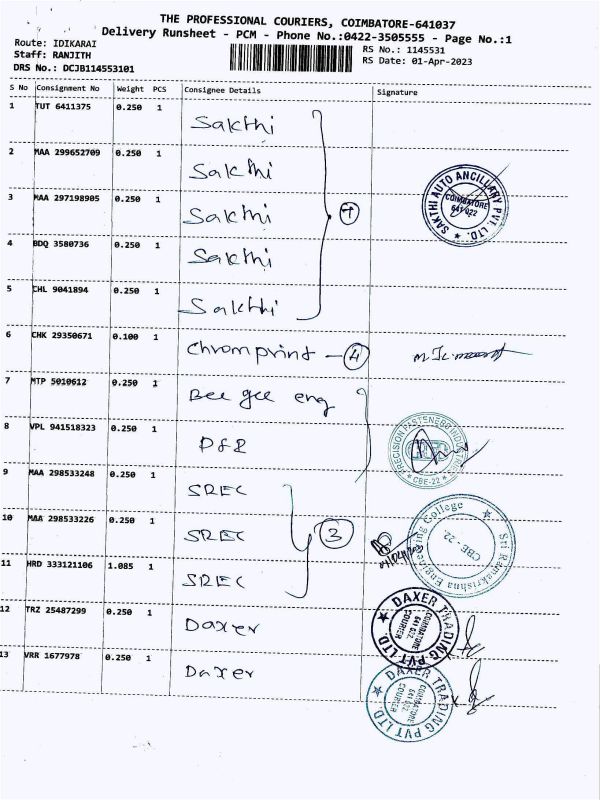 THE PROFESSIONAL COURIERS, COIMBATORE-641037
Delivery Runsheet - PCM - Phone No.:0422-3505555 - Page No.:1
Route: IDIKARAI
RS No.: 1145531
Staff: RANJITH
RS Date: 01-Apr-2023
DRS No.: DCJB114553101
S No Consignment No Weight PCS Consignee Details Signature
1 TUT 6411375 0.250 1 Sakthi
2 MAA 299652709 0.250 1 Sakthi
SAKTHI AUTO ANCILLARY PVT. LTD.
COIMBATORE
641 022
3 MAA 297198905 0.250 1 Sakthi
4 BDQ 3580736 0.250 1 Sakthi
5 CHL 9041894 0.250 1 Sakthi
6 CHK 29350671 0.100 1 Chromprint - 4
7 MTP 5010612 0.250 1 Bee gee eng
8 VPL 941518323 0.250 1 P&R
PRECISION FASTENERS INDUSTRIES
CBE-22
9 MAA 298533248 0.250 1 SREC
10 MAA 298533226 0.250 1 SREC 3
Sri Ramakrishna Engineering College
CBE-22.
11 HRD 333121106 1.085 1 SREC
12 TRZ 25487299 0.250 1 Daxer
DAXER TRADING PVT LTD.
COIMBATORE
641 022.
COURIER
13 VRR 1677978 0.250 1 Daxer
DAXER TRADING PVT LTD.
COIMBATORE
641 022.
COURIER